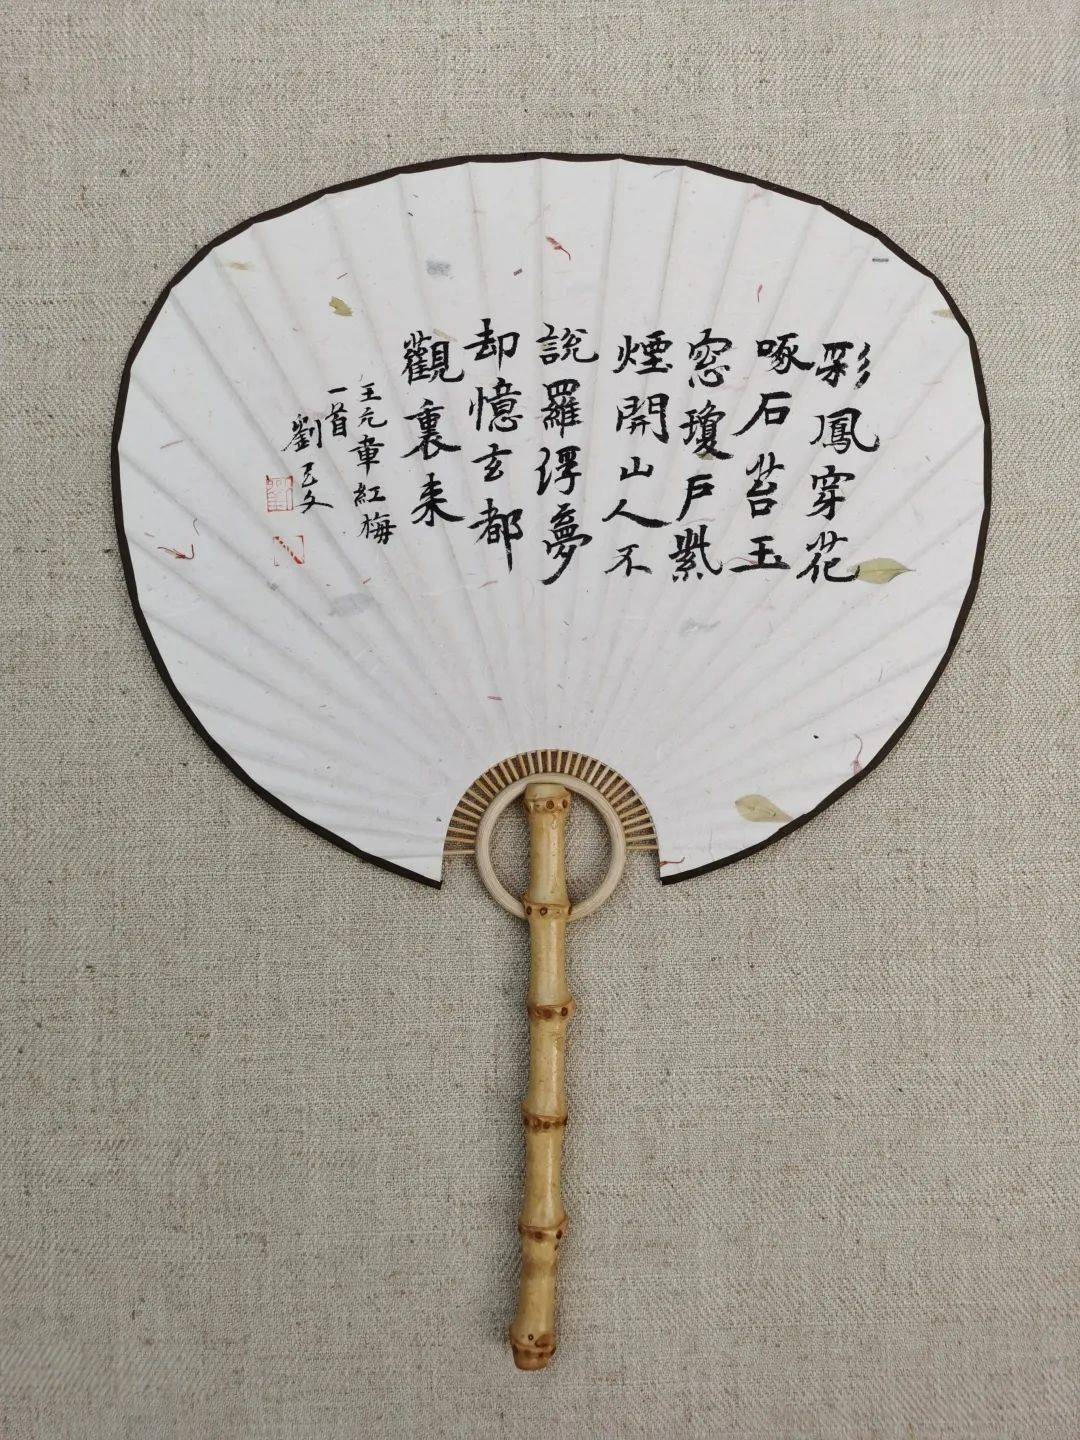 彩鳳穿花
啄石苔玉
窓瓊戶紫
煙開山人不
說羅浮夢
却憶玄都
觀裏来
王元章紅梅
一首
劉文